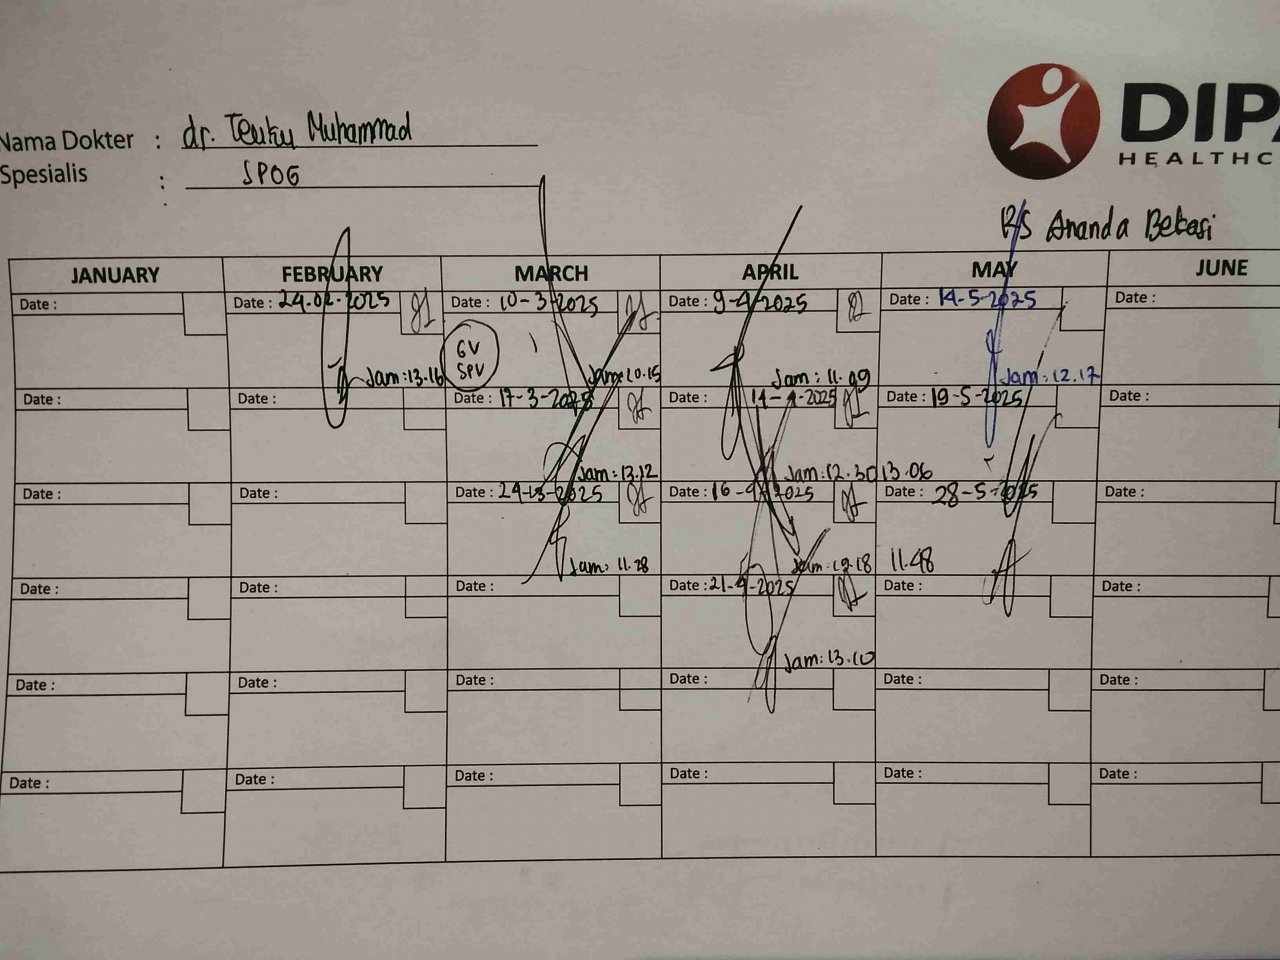 Nama Dokter : dr. Teuku Muhammad
Spesialis : SPOG
DIPA
HEALTHC
RS Ananda Bekasi
JANUARY FEBRUARY MARCH APRIL MAY JUNE
Date : Date : 24-02-2025 Date : 10-3-2025 Date : 9-4-2025 Date : 14-5-2025 Date :
GV
SPV
Jam: 13.16 Jam: 10.15 Jam: 11.09 Jam: 12.17
Date : Date : Date : 17-3-2025 Date : 14-4-2025 Date : 19-5-2025 Date :
Jam: 13.12 Jam: 12.30 13.06
Date : Date : Date : 24-3-2025 Date : 16-4-2025 Date : 28-5-2025 Date :
Jam: 11.28 Jam: 12.18 11.48
Date : Date : Date : Date : 21-4-2025 Date : Date :
Jam: 13.10
Date : Date : Date : Date : Date : Date :
Date : Date : Date : Date : Date : Date :